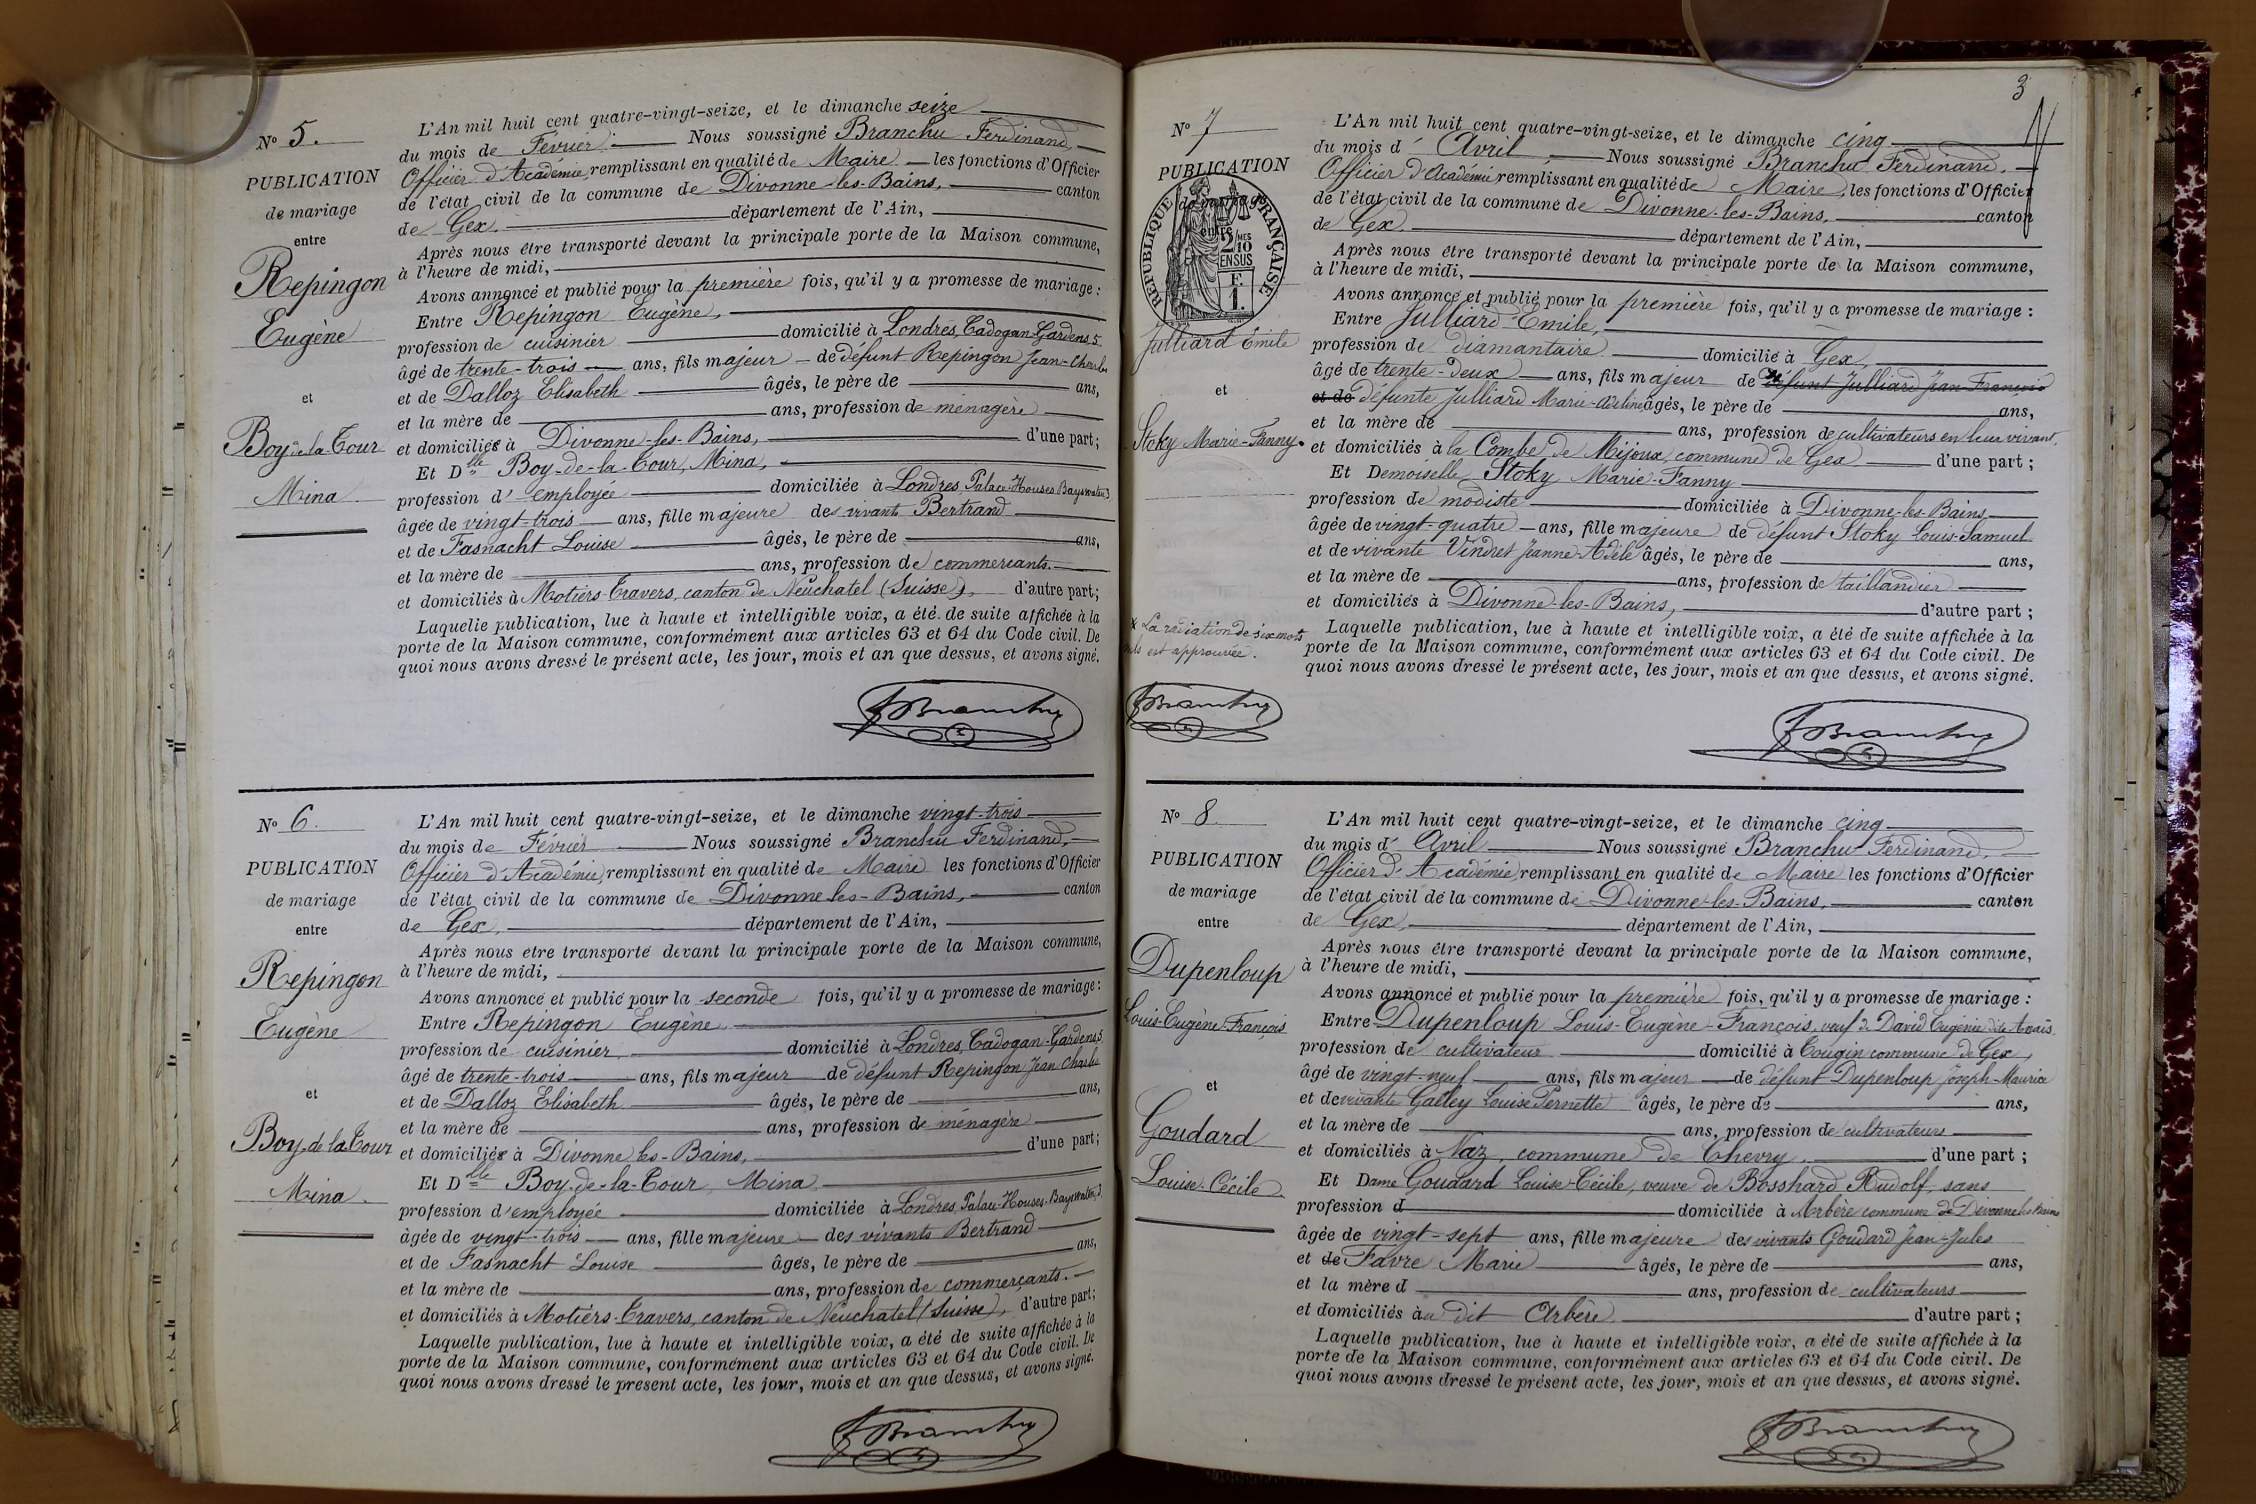 N° 5.
PUBLICATION
de mariage
entre
Repingon
Eugène
et
Boy-de-la-Tour
Mina
L'An mil huit cent quatre-vingt-seize, et le dimanche seize
du mois de Février. Nous soussigné Branchu Ferdinand,
Officier d'Académie, remplissant en qualité de Maire les fonctions d'Officier
de l'état civil de la commune de Divonne-les-Bains, canton
de Gex. département de l'Ain,
Après nous être transporté devant la principale porte de la Maison commune,
à l'heure de midi,
Avons annoncé et publié pour la première fois, qu'il y a promesse de mariage :
Entre Repingon Eugène,
profession de cuisinier domicilié à Londres, Cadogan-Gardens, 5
âgé de trente-trois ans, fils majeur de défunt Repingon Jean-Charles
et de Dalloz Elisabeth âgés, le père de ans,
et la mère de ans, profession de ménagère
et domiciliés à Divonne-les-Bains, d'une part;
Et Dlle Boy-de-la-Tour, Mina,
profession d'employée domiciliée à Londres, Palace-Houses Bayswater, 3
âgée de vingt-trois ans, fille majeure des vivants Bertrand
et de Fasnacht Louise âgés, le père de ans,
et la mère de ans, profession de commerçants.
et domiciliés à Motiers-Travers, canton de Neuchatel (Suisse), d'autre part;
Laquelle publication, lue à haute et intelligible voix, a été de suite affichée à la
porte de la Maison commune, conformément aux articles 63 et 64 du Code civil. De
quoi nous avons dressé le présent acte, les jour, mois et an que dessus, et avons signé.
FBranchu
N° 6.
PUBLICATION
de mariage
entre
Repingon
Eugène
et
Boy-de-la-Tour
Mina.
L'An mil huit cent quatre-vingt-seize, et le dimanche vingt-trois
du mois de Février Nous soussigné Branchu Ferdinand,
Officier d'Académie, remplissant en qualité de Maire les fonctions d'Officier
de l'état civil de la commune de Divonne-les-Bains, canton
de Gex, département de l'Ain,
Après nous etre transporté devant la principale porte de la Maison commune,
à l'heure de midi,
Avons annoncé et publié pour la seconde fois, qu'il y a promesse de mariage :
Entre Repingon Eugène
profession de cuisinier, domicilié à Londres, Cadogan-Gardens, 5
âgé de trente-trois ans, fils majeur de défunt Repingon Jean-Charles
et de Dalloz Elisabeth âgés, le père de ans,
et la mère de ans, profession de ménagère
et domiciliés à Divonne-les-Bains, d'une part;
Et Dlle Boy-de-la-Tour, Mina
profession d'employée domiciliée à Londres, Palace-Houses-Bayswater, 3
âgée de vingt-trois ans, fille majeure des vivants Bertrand
et de Fasnacht Louise âgés, le père de ans,
et la mère de ans, profession de commerçants.
et domiciliés à Motiers-Travers, canton de Neuchatel (Suisse), d'autre part;
Laquelle publication, lue à haute et intelligible voix, a été de suite affichée à la
porte de la Maison commune, conformément aux articles 63 et 64 du Code civil. De
quoi nous avons dressé le present acte, les jour, mois et an que dessus, et avons signé.
FBranchu
3
N° 7
PUBLICATION
de mariage
entre
RÉPUBLIQUE FRANÇAISE
2/10 MES
EN SUS
F.
1.
Julliard Émile
et
Stoky Marie-Fanny
L'An mil huit cent quatre-vingt-seize, et le dimanche cinq
du mois d' Avril Nous soussigné Branchu Ferdinand.
Officier d'Académie, remplissant en qualité de Maire, les fonctions d'Officier
de l'état civil de la commune de Divonne-les-Bains, canton
de Gex. département de l'Ain,
Après nous être transporté devant la principale porte de la Maison commune,
à l'heure de midi,
Avons annoncé et publié pour la première fois, qu'il y a promesse de mariage :
Entre Julliard Émile,
profession de diamantaire domicilié à Gex,
âgé de trente-deux ans, fils majeur de défunt Julliard Jean-François
et de défunte Julliard Marie- âgés, le père de ans,
et la mère de ans, profession de cultivateurs en leur vivant,
et domiciliés à la Combe de Mijoux, commune de Gex d'une part ;
Et Demoiselle Stoky Marie-Fanny
profession de modiste domiciliée à Divonne-les-Bains
âgée de vingt-quatre ans, fille majeure de défunt Stoky Louis-Samuel
et de vivante Vindret Jeanne-Adèle âgés, le père de ans,
et la mère de ans, profession de taillandier
et domiciliés à Divonne-les-Bains, d'autre part ;
Laquelle publication, lue à haute et intelligible voix, a été de suite affichée à la
porte de la Maison commune, conformément aux articles 63 et 64 du Code civil. De
quoi nous avons dressé le présent acte, les jour, mois et an que dessus, et avons signé.
x La radiation de six mots
nuls est approuvée.
FBranchu
FBranchu
N° 8
PUBLICATION
de mariage
entre
Dupenloup
Louis-Eugène-François
et
Goudard
Louise-Cécile.
L'An mil huit cent quatre-vingt-seize, et le dimanche cinq
du mois d' Avril Nous soussigné Branchu Ferdinand.
Officier d'Académie, remplissant en qualité de Maire les fonctions d'Officier
de l'état civil de la commune de Divonne-les-Bains, canton
de Gex, département de l'Ain,
Après nous être transporté devant la principale porte de la Maison commune,
à l'heure de midi,
Avons annoncé et publié pour la première fois, qu'il y a promesse de mariage :
Entre Dupenloup Louis-Eugène-François, veuf de David Eugénie dite Anaïs
profession de cultivateur domicilié à Tougin commune de Gex,
âgé de vingt-neuf ans, fils majeur de défunt Dupenloup Joseph-Maurice
et de vivante Galley Louise Pernette âgés, le père de ans,
et la mère de ans, profession de cultivateurs
et domiciliés à Naz, commune de Chevry. d'une part ;
Et Dame Goudard Louise-Cécile, veuve de Bosshard Rudolf, sans
profession d domiciliée à Arbère commune de Divonne-les-Bains
âgée de vingt-sept ans, fille majeure des vivants Goudard Jean-Jules
et de Favre Marie âgés, le père de ans,
et la mère d ans, profession de cultivateurs
et domiciliés au dit Arbère d'autre part ;
Laquelle publication, lue à haute et intelligible voix, a été de suite affichée à la
porte de la Maison commune, conformément aux articles 63 et 64 du Code civil. De
quoi nous avons dressé le présent acte, les jour, mois et an que dessus, et avons signé.
FBranchu